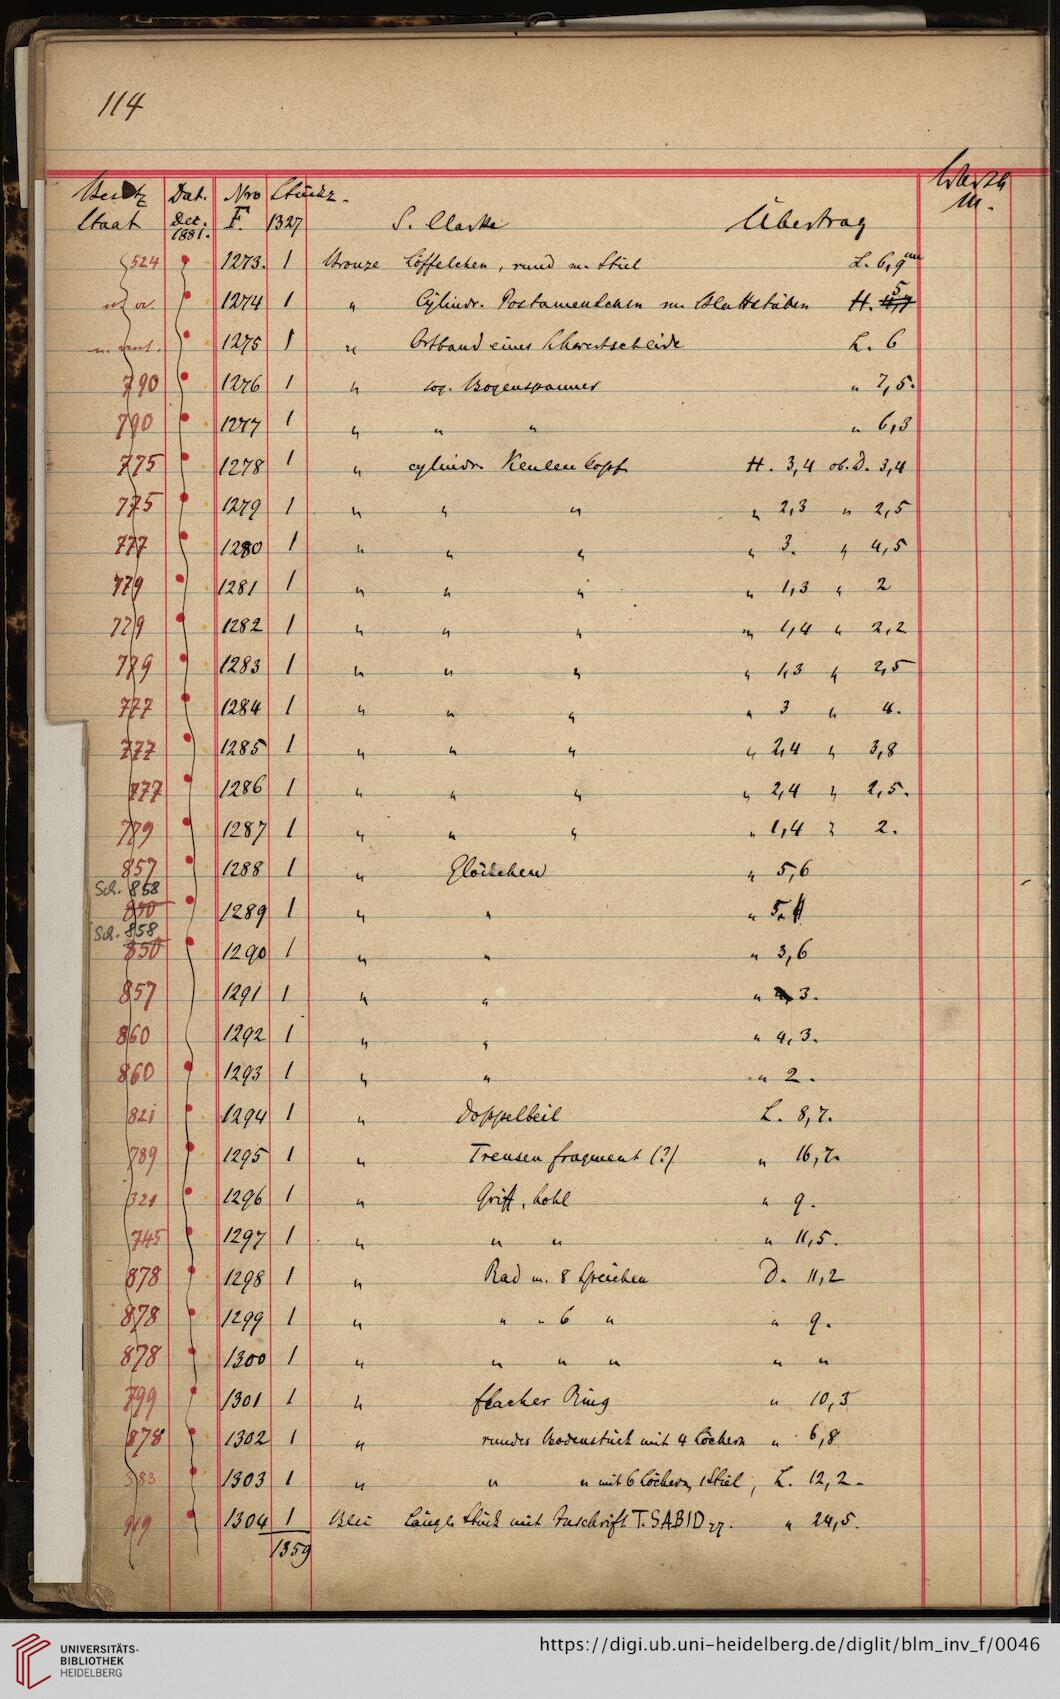 114
Besitz Dat. Nro Stückz. Werth
Staat Dec. 1881. F. 1327 S. Marke Übertrag M.
524 1273. 1 Bronze Löffelchen, rund m. Stiel L. 6,9 cm
1274 1 " Cylindr. Postamentchen m. Blattstäben H. 5
1275 1 " Ortband eines Schwertscheide L. 6
790 1276 1 " sog. Bogenspanner " 7,5.
790 1277 1 " " " " 6,3
775 1278 1 " cylindr. Keulenkopf H. 3,4 ob. D. 3,4
775 1279 1 " " " " 2,3 " 2,5
777 1280 1 " " " " 3. " 4,5
779 1281 1 " " " " 1,3 " 2
779 1282 1 " " " " 1,4 " 2,2
779 1283 1 " " " " 1,3 " 2,5
777 1284 1 " " " " 3 " 4.
777 1285 1 " " " " 2,4 " 3,8
777 1286 1 " " " " 2,4 " 2,5.
779 1287 1 " " " " 1,4 " 2.
857 1288 1 " Glöckchen " 5,6
Sch. 858
850 1289 1 " " "
Sch. 858
850 1290 1 " " " 3,6
857 1291 1 " " " 3.
860 1292 1 " " " 4,3.
860 1293 1 " " " 2.
821 1294 1 " Doppelbeil L. 8,7.
789 1295 1 " Trensenfragment (?) " 16,7.
321 1296 1 " Griff, hohl " 9.
745 1297 1 " " " " 11,5.
878 1298 1 " Rad m. 8 Speichen D. 11,2
878 1299 1 " " " 6 " " 9.
878 1300 1 " " " " " "
799 1301 1 " flacher Ring " 10,3
878 1302 1 " rundes Bodenstück mit 4 Löchern " 6,8
383 1303 1 " " " mit 6 Löchern, 1 Stiel, L. 12,2.
919 1304 1 Blei Längl. Stück mit Inschrift T. SABID " 24,5.
1359
UNIVERSITÄTS-
BIBLIOTHEK
HEIDELBERG
https://digi.ub.uni-heidelberg.de/diglit/blm_inv_f/0046